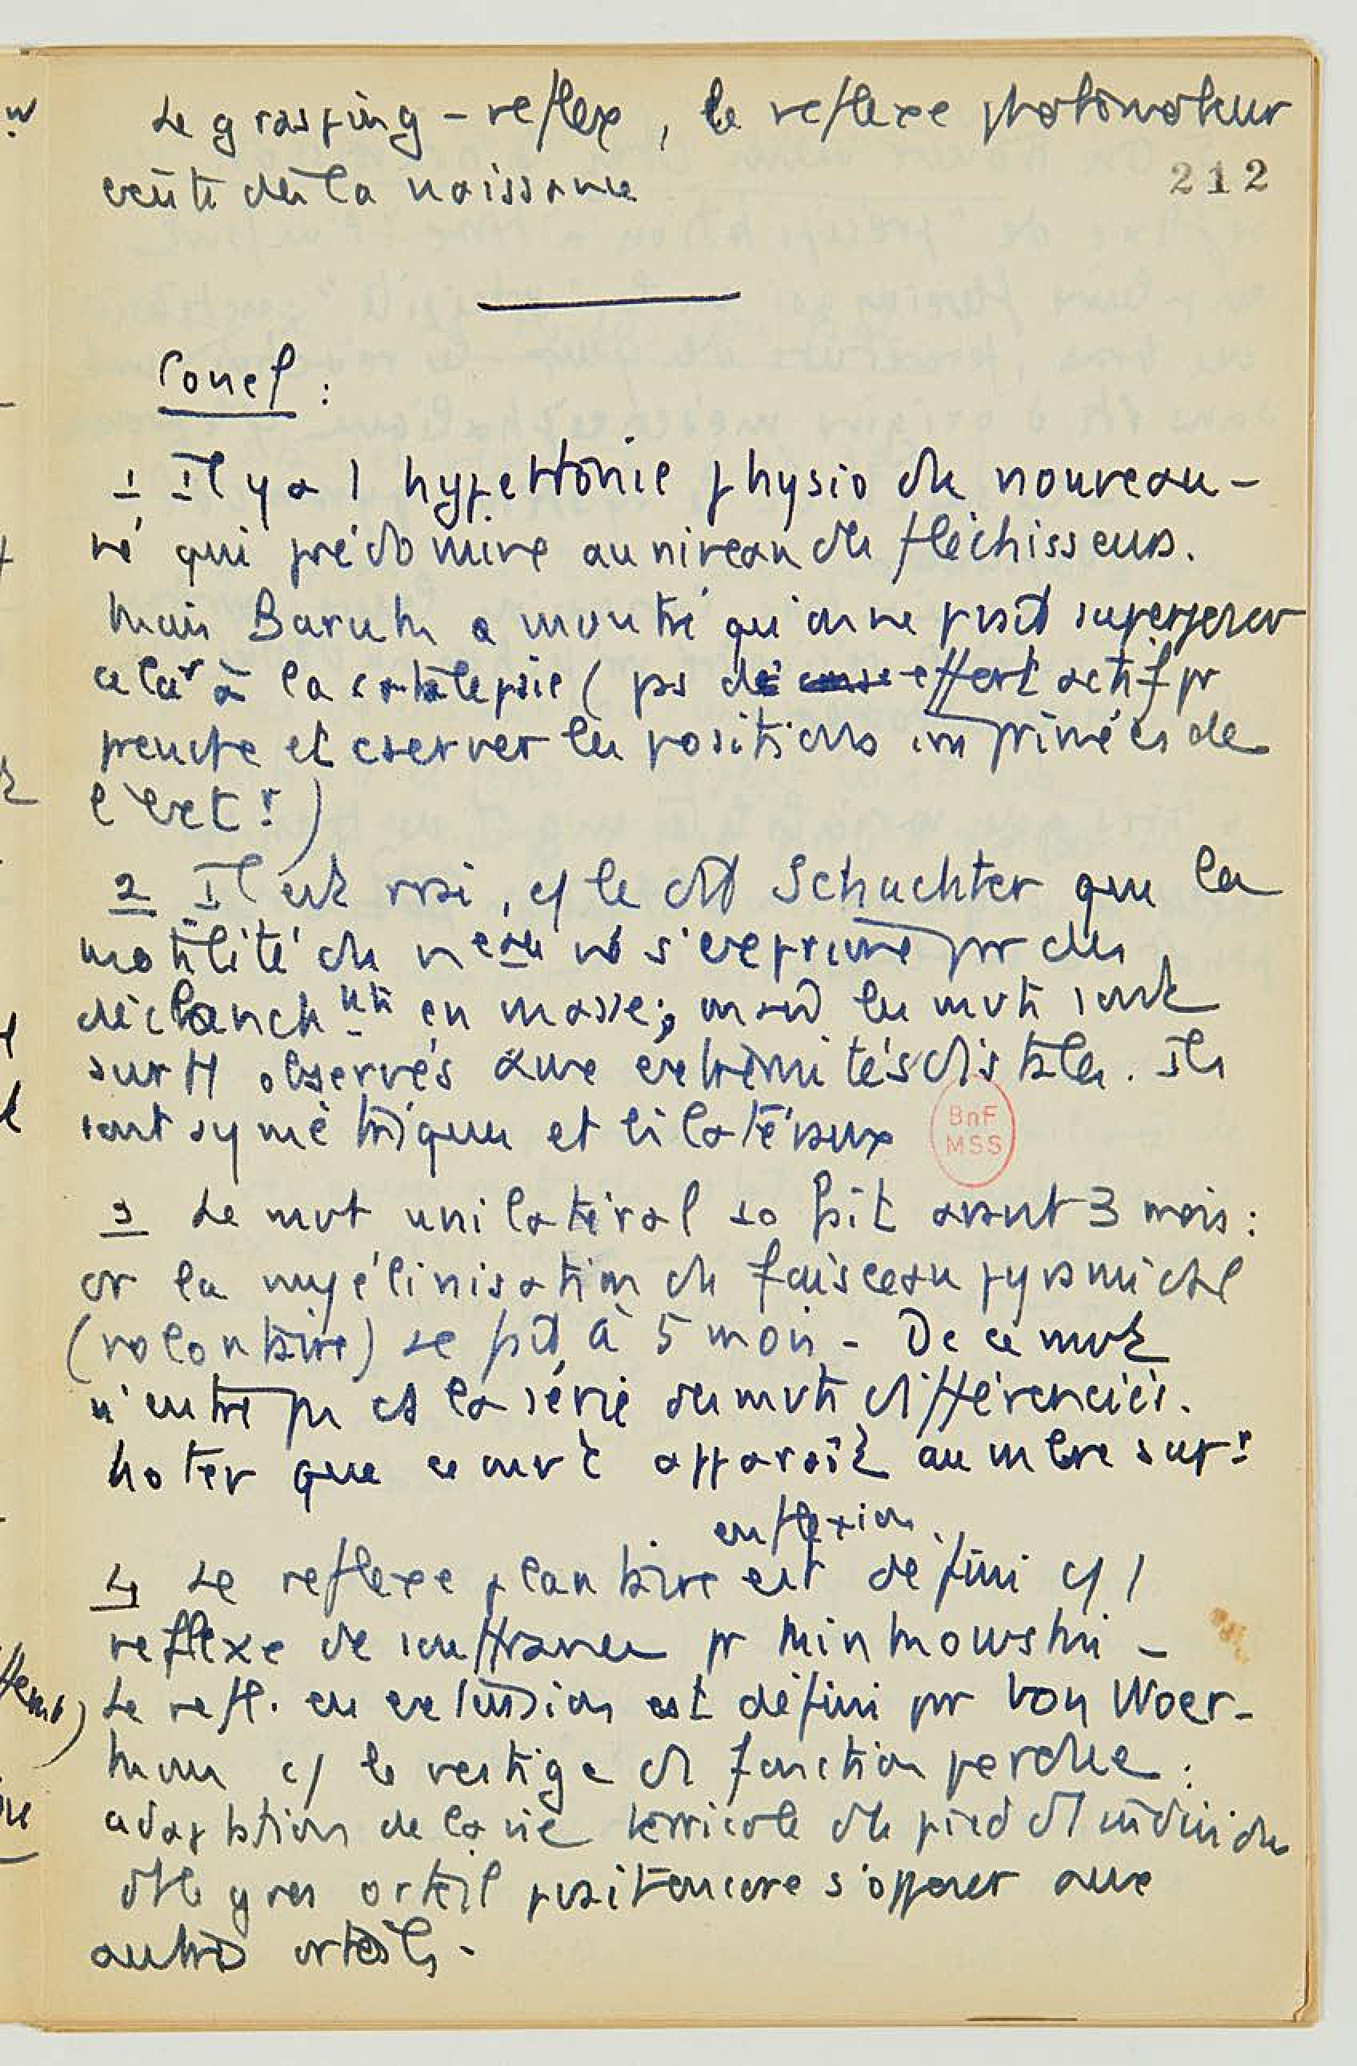 Le grasping-reflex, le reflexe photomoteur
212
existe dès la naissance
Concl :
1 Il y a 1 hypertonie physio du nouveau-
né qui prédomine au niveau des fléchisseurs.
Mais Baruk a montré qu'on ne psait superposer
cela à la catalepsie (ps de effort actif pr
prendre et cserver les positions imprimées de
l'ext.r)
2 Il est vrai, c/ le dit Schachter que la
motilité du neau né s'exprime par des
déclanchnts en masse; mais les mvts sont
surtt observés aux extrémités distales. Ils
sont symétriques et bilatéraux
BnF
MSS
3 Le mvt unilatéral se fait avant 3 mois :
or la myélinisation du faisceau pyramidal
(volontaire) se fait à 5 mois - Dc ce mvt
n'entre pas ds la série des mvts différenciés.
Noter que ce mvt apparaît au mbre supr
en flexion
4 Le reflexe plantaire est défini c/ 1
reflexe de souffrance pr Minkowski -
Le refl. en extension est défini pr Von Woer-
kom c/ le vestige d fonction perdue :
adaptation de la vie terricole du pied d individu
dt le gros orteil psait encore s'opposer aux
autres orteils.